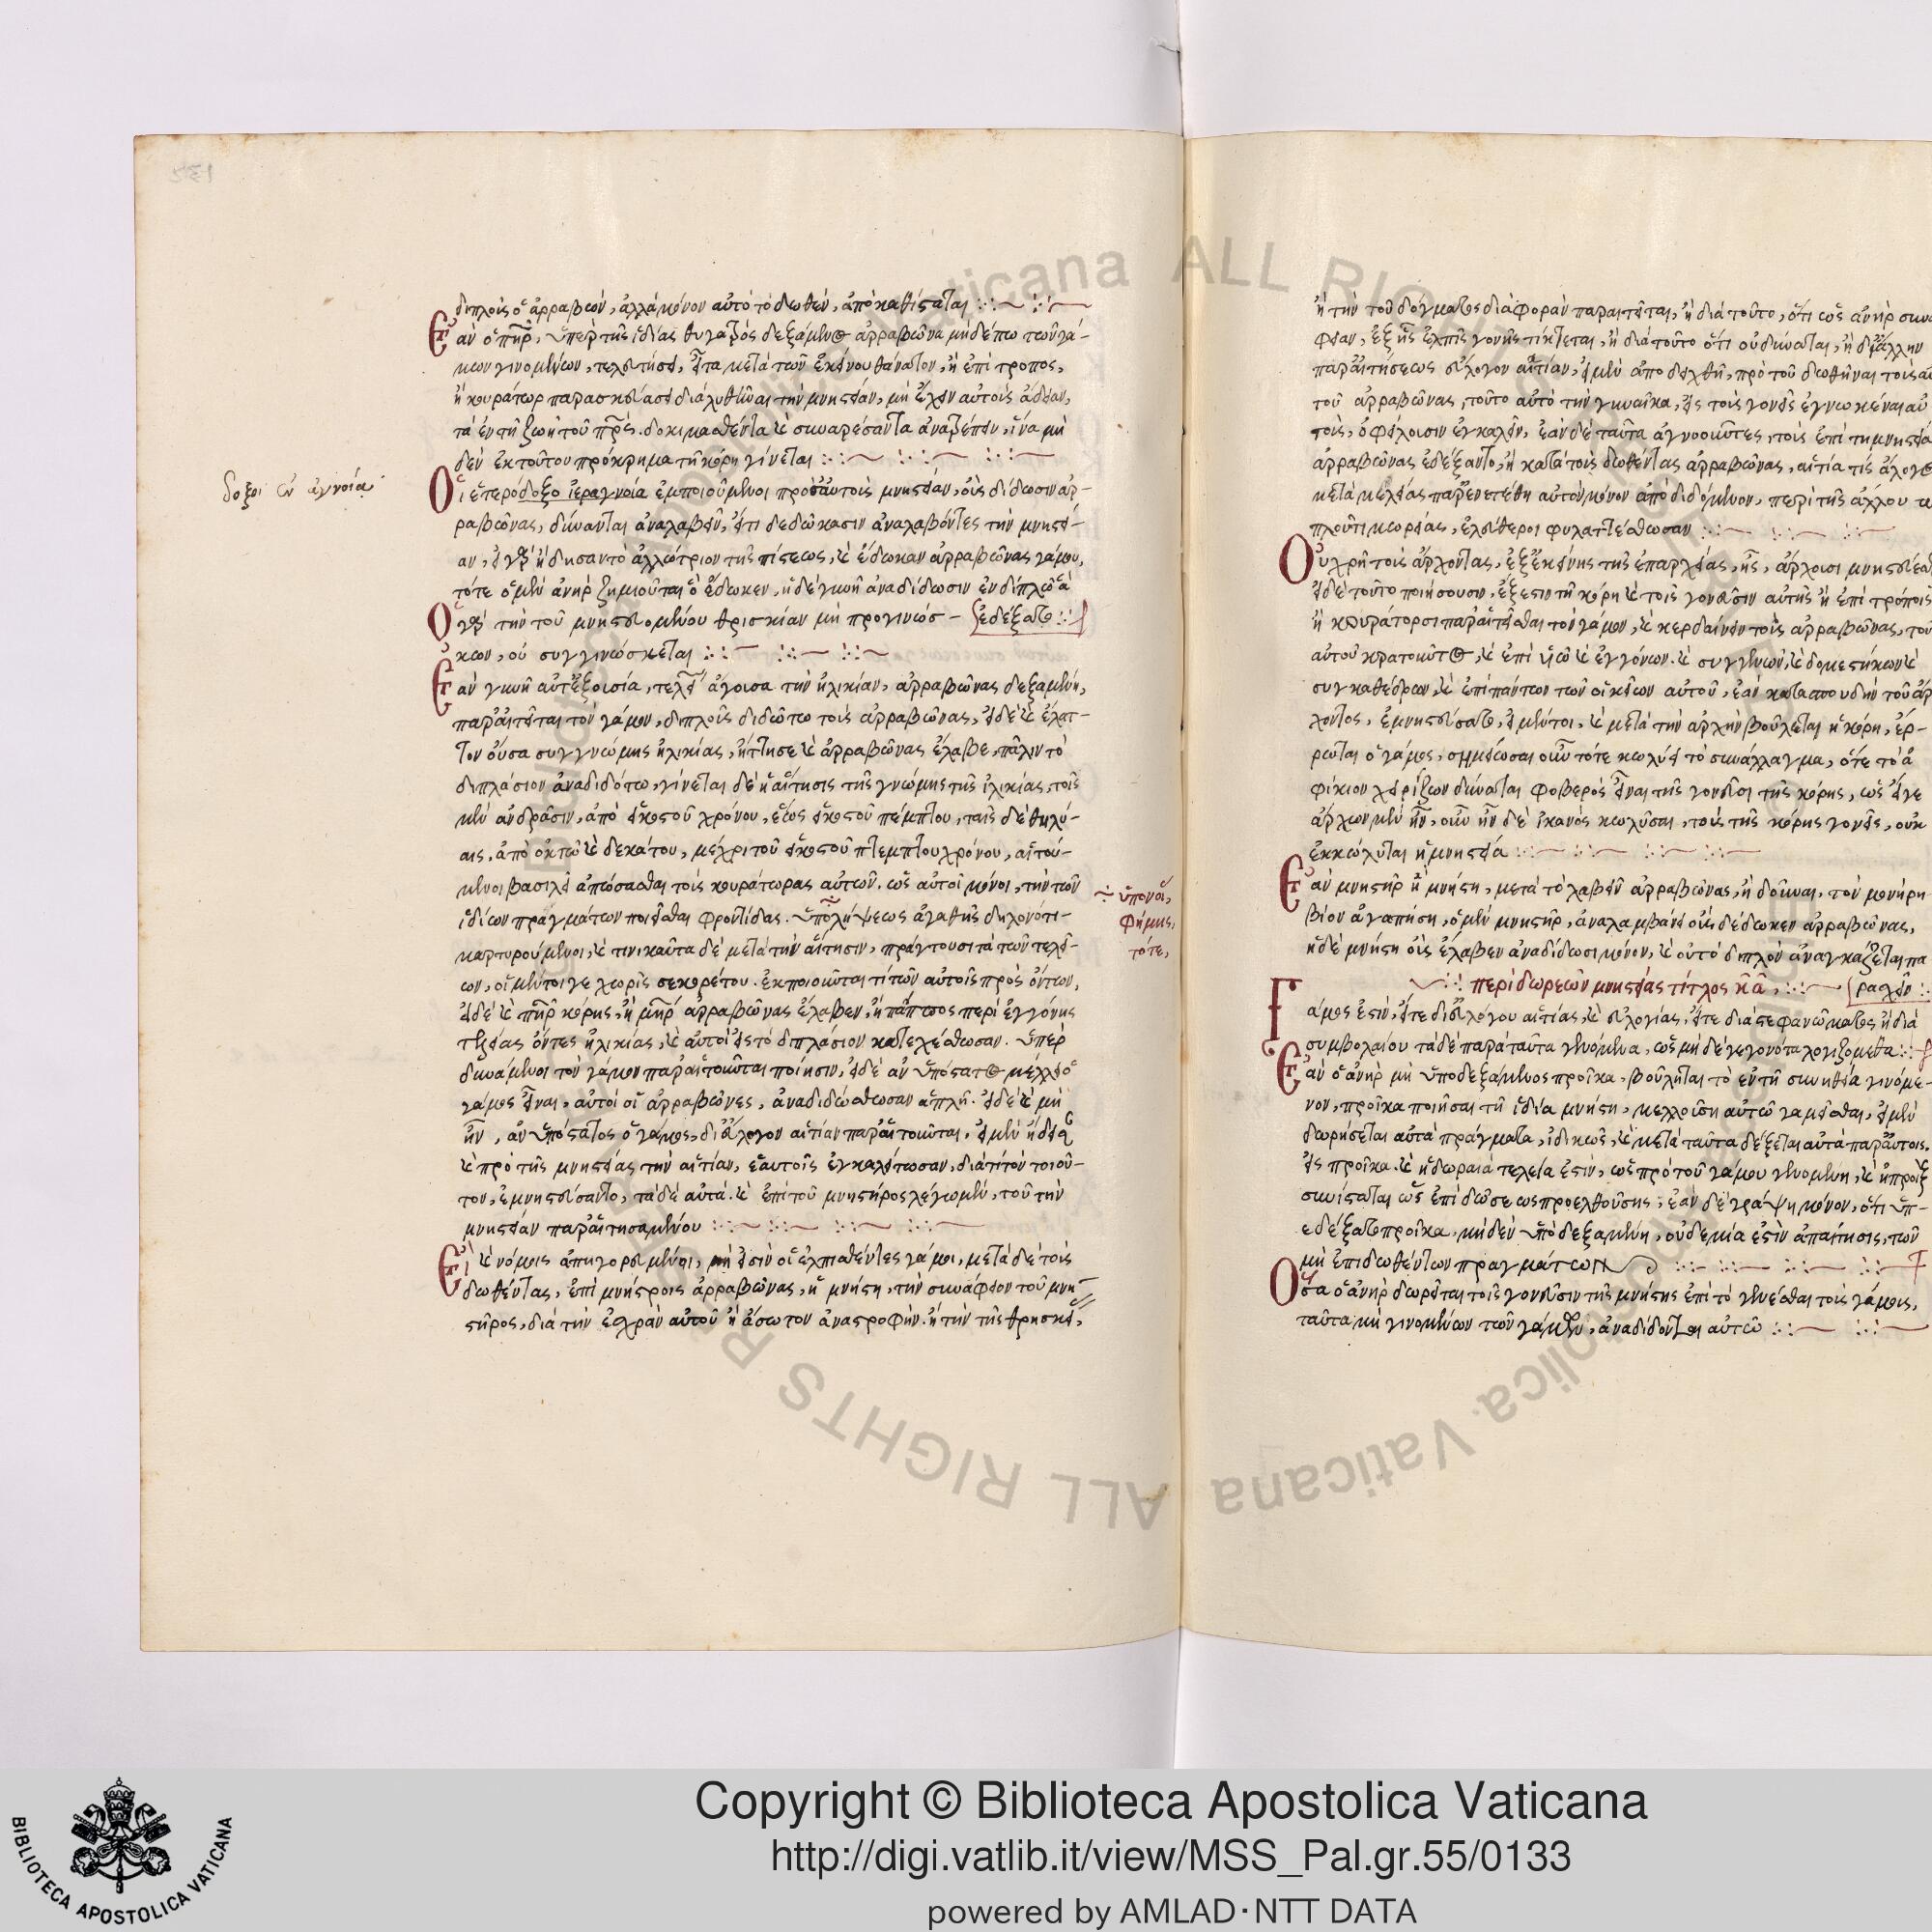 διπλοῖς ὁ ἀρραβών, ἀλλὰ μόνον αὐτὸ τὸ δωθὲν, ἀποκαθίσταται
ἐὰν ὁ πηρ, ὑπὲρ τῆς ἰδίας θυγατρός δεξάμενος ἀρραβῶνα μηδέπω τῶν γά-
μων γινομένων, τελευτήσει, εἶτα μετὰ τῶν ἐκείνου θάνατον, ἢ ἐπίτροπος,
ἢ κουράτωρ παρασκευάσει διαλυθῆναι τὴν μνηστείαν, μὴ ἔχειν αὐτοὶς ἄδειαν,
τὰ ἐν τῆ ζωῆ τοῦ πρς δοκιμασθέντα καὶ συναρέσαντα ἀνατρέπειν, ἵνα μὴ
δὲν ἐκ τούτου πρόκριμα τῆ κόρη γίνεται
δοξοι ἐν ἀγνοία
Οἱ ἑτερόδοξο ἱεραγνοία ἐμποιούμενοι πρὸς αὐτοὶς μνηστείαν, οὓς διδωσιν ἀρ-
ραβῶνας, δύνανται ἀναλαβεῖν, εἴτι δεδώκασιν ἀναλαβόντες τὴν μνηστεί-
αν, εἰ γὰρ ἤδησαν τὸ ἀλλότριον τῆς πίστεως, καὶ ἔδωκαν ἀρραβῶνας γάμου,
τότε ὁ μὲν ἀνὴρ ζημιοῦται ὃ ἔδωκεν, ἡ δὲ γυνὴ ἀναδίδωσιν ἐν διπλῶ ἃ
ἐδέξατο
Ο γὰρ τὴν τοῦ μνηστευομένου θρισκίαν μὴ προγινώσ-
κων, οὐ συγγινώσκεται
ἐὰν γυνὴ αὐτεξουσία, τελεί ἄγουσα τὴν ἡλικίαν, ἀρραβῶνας δεξαμένη,
παραιτεῖται τὸν γάμον, διπλοῦς διδῶτω τοὶς ἀρραβῶνας, εἰ δὲ καὶ ἐλατ-
τον οὖσα συγγνώμης ἡλικίας, ἤτησε καὶ ἀρραβῶνας ἔλαβε, πάλιν τὸ
διπλάσιον ἀναδιδότω, γίνεται δὲ ἡ αἴτησις τῆς γνώμης τῆς ἡλικίας, τοῖς
μὲν ἀνδράσιν, ἀπὸ εἰκοστοῦ χρόνου, ἕως εἰκοστοῦ πέμπτου, ταῖς δὲ θηλύ-
αις, ἀπὸ ὀκτῶ καὶ δεκάτου, μέχρι τοῦ εἰκοστοῦ πεμπτου χρόνου, αἰτού-
μενοι βασιλεῖ ἀπώσασθαι τοὶς κουράτωρας αὐτῶν. ὡς αὐτοὶ μόνοι, τὴν τῶν
ἰδίων πραγμάτων ποιεῖσθαι φροντίδας. ὑπολήψεως ἀγαθῆς δηλονότι
ὑπονοί,
φήμης,
τότε,
μαρτυρούμενοι, καὶ τινικαῦτα δὲ μετὰ τὴν αἴτησιν, πράγτουσι τὰ τῶν τελεί-
ων, οἱ μέντοιγε χωρὶς σεκρέτου. ἐκποιοῦνται τί τῶν αὐτοῖς πρὸς ὄντων,
εἰ δὲ καὶ πηρ κόρης, ἢ μηρ ἀρραβῶνας ἔλαβεν, ἢ πάππος περὶ ἐγγόνης
τελείας ὄντες ἡλικίας, καὶ αὐτοὶ εἰς τὸ διπλάσιον κατεχέσθωσαν. ὑπὲρ
δυνάμενοι τὸν γάμον παραιτοῦνται ποίησιν, εἰ δὲ ἀνυπόστατος μέλλει ὁ
γάμος εἶναι, αὐτοὶ οἱ ἀρραβῶνες, ἀναδιδώσθωσαν ἁπλῆ. εἰ δὲ καὶ μὴ
ἦν, ἀνυπόστατος ὁ γάμος, δι' εὔλογον αἰτίαν παραιτοῦνται, εἰ μὲν ἤδεισαν
καὶ πρὸ τῆς μνηστείας τὴν αἰτίαν, ἑαυτοῖς ἐγκαλείτωσαν, διὰ τί τὸν τοιοῦ-
τον, ἐμνηστεύσαντο, τὰ δὲ αὐτὰ καὶ ἐπὶ τοῦ μνηστῆρος λέγωμεν, τοῦ τὴν
μνηστείαν παραιτησαμένου
Εἰ καὶ νόμοις ἀπηγορευμένοι, μὴ εἰσὶν οἱ ἐλπισθέντες γάμοι, μετὰ δὲ τοὶς
δωθέντας, ἐπὶ μνήστροις ἀρραβῶνας, ἡ μνήστη, τὴν συνάφειον τοῦ μνη-
στῆρος, διὰ τὴν ἐχρὰν αὐτοῦ ἢ ἄσωτον ἀναστροφὴν. ἢ τὴν τῆς θρησκεί,
ἢ τὴν τοῦ δόγματος διάφοραν παραιτεῖται, ἢ διὰ τοῦτο, ὅτι ὡς ἀνὴρ συνά
φειαν, ἐξ ἧς ἐλπὶς γονῆς τίκτεται, ἢ διὰ τοῦτο ὅτι οὐ δύναται, ἢ δι' ἄλλην
παραιτήσεως εὔλογον αἰτίαν, εἰ μὲν ἀποδειχθῆ, πρὸ τοῦ δωθῆναι τοὶς αὐ
τοῦ ἀρραβῶνας, τοῦτο αὐτὸ τὴν γυναῖκα, εἰς τοὶς γονεῖς ἐγνωκέναι αὐ
τοὶς, ὀφείλουσιν ἐγκαλεῖν, ἐὰν δὲ ταῦτα ἀγνοοῦντες, τοὶς ἐπὶ τη μνηστεία
ἀρραβῶνας ἐδέξαντο, ἢ κατὰ τοὺς δωθέντας ἀρραβῶνας, αἰτία τίς ἄλογος
πλοῦτι μωρείας, ἐλεύθεροι φυλαττέσθωσαν
Οὐ χρὴ τοὶς ἄρχοντας, ἐξ ἐκείνης τῆς ἐπαρχείας, ἧς, ἄρχουσι μνηστεύεσθ
εἰ δὲ τοῦτο ποιήσουσιν, ἔξεστιν τῆ κόρη καὶ τοὶς γονεῦσιν αὐτῆς ἢ ἐπιτρόποις
ἢ κουράτορσι παραιτεῖσθαι τὸν γάμον, καὶ κερδαίνειν τοῖς ἀρραβῶνας, τοῦ
αὐτοῦ κρατοῦντος, καὶ ἐπὶ υἱῶ καὶ ἐγγόνων. καὶ συγγενῶν, καὶ δομεστήκων καὶ
συγκαθέδρων, καὶ ἐπὶ πάντων τῶν οἰκείων αὐτοῦ, ἐὰν κατὰ σπουδὴν τοῦ ἄρ
χοντος, ἐμνηστεύσατο, εἰ μέντοι, καὶ μετὰ τὴν ἀρχὴν βούλεται ἡ κόρη, ἔρ-
ρωται ὁ γάμος, σημείωσαι οὖν τότε κωλύει τὸ συνάλλαγμα, ὅτε τὸ ὀ
φίκιον χειρίζων δύναται φοβερὸς εἶναι τῆς γονεῦσι τῆς κόρης, ὡς εἴγε
ἄρχων μὲν ἦν, οὖν ἦν δὲ ἱκανὸς κωλῦσαι, τοὺς τῆς κόρης γονεῖς, οὐκ
ἐκκώλυται ἡ μνηστεία
ἐὰν μνηστὴρ ἢ μνήστη, μετὰ τὸ λαβεῖν ἀρραβῶνας, ἢ δοῦναι. τὸν μονήρη
βίον ἀγαπήση, ὁ μὲν μνηστὴρ, ἀναλαμβάνει οὓς δέδωκεν ἀρραβῶνας,
ἡ δὲ μνήστη οἷς ἔλαβεν ἀναδίδωσι μόνον, καὶ οὐ τὸ διπλοῦν ἀναγκάζεται πα
ρασχεῖν
περὶ δωρεῶν μνηστείας τίτλος κα
Γάμος ἐστὶν, εἴτε δι' εὐλόγου αἰτίας, καὶ εὐλογίας, εἴτε διὰ στεφανώματος ἢ διὰ
συμβολαίου τὰ δὲ παρὰ ταῦτα γενόμενα, ὡς μὴ δὲ γεγονότα λογιζόμεθα
ἐὰν ὁ ἀνὴρ μὴ ὑποδεξάμενος προῖκα, βούληται τὸ ἐν τῆ συνηθεία γινόμε-
νον, προῖκα ποιῆσαι τῆ ἰδία μνήστη, μελλούση αὐτῶ γαμεῖσθαι, εἰ μὲν
δωρήσεται αὐτὰ πράγματα, ἰδικῶς, καὶ μετὰ ταῦτα δέξεται αὐτὰ παρ' αὐτοις.
εἰς προῖκα. καὶ ἡ δωραιὰ τελεία ἐστὶν, ὡς πρὸ τοῦ γάμου γενομένη, καὶ ἡ προὶξ
συνίσταται ὡς ἐπιδώσεως προελθούσης, ἐὰν δὲ γράψη μόνον, ὅτι ὑπ-
εδέξατο προῖκα, μηδὲν ὑποδεξαμένη, οὐδεμία ἐστὶν ἀπαίτησις, τῶν
μὴ ἐπιδωθέντων πραγμάτων
Ὅσα ὁ ἀνὴρ δωρεῖται τοῖς γονεῦσιν τῆς μνήστης ἐπὶ τὸ γενέσθαι τοὶς γάμοις,
ταῦτα μὴ γινομένων τῶν γάμων, ἀναδίδονται αὐτῶ
Copyright © Biblioteca Apostolica Vaticana
http://digi.vatlib.it/view/MSS_Pal.gr.55/0133
powered by AMLAD·NTT DATA
BIBLIOTECA APOSTOLICA VATICANA